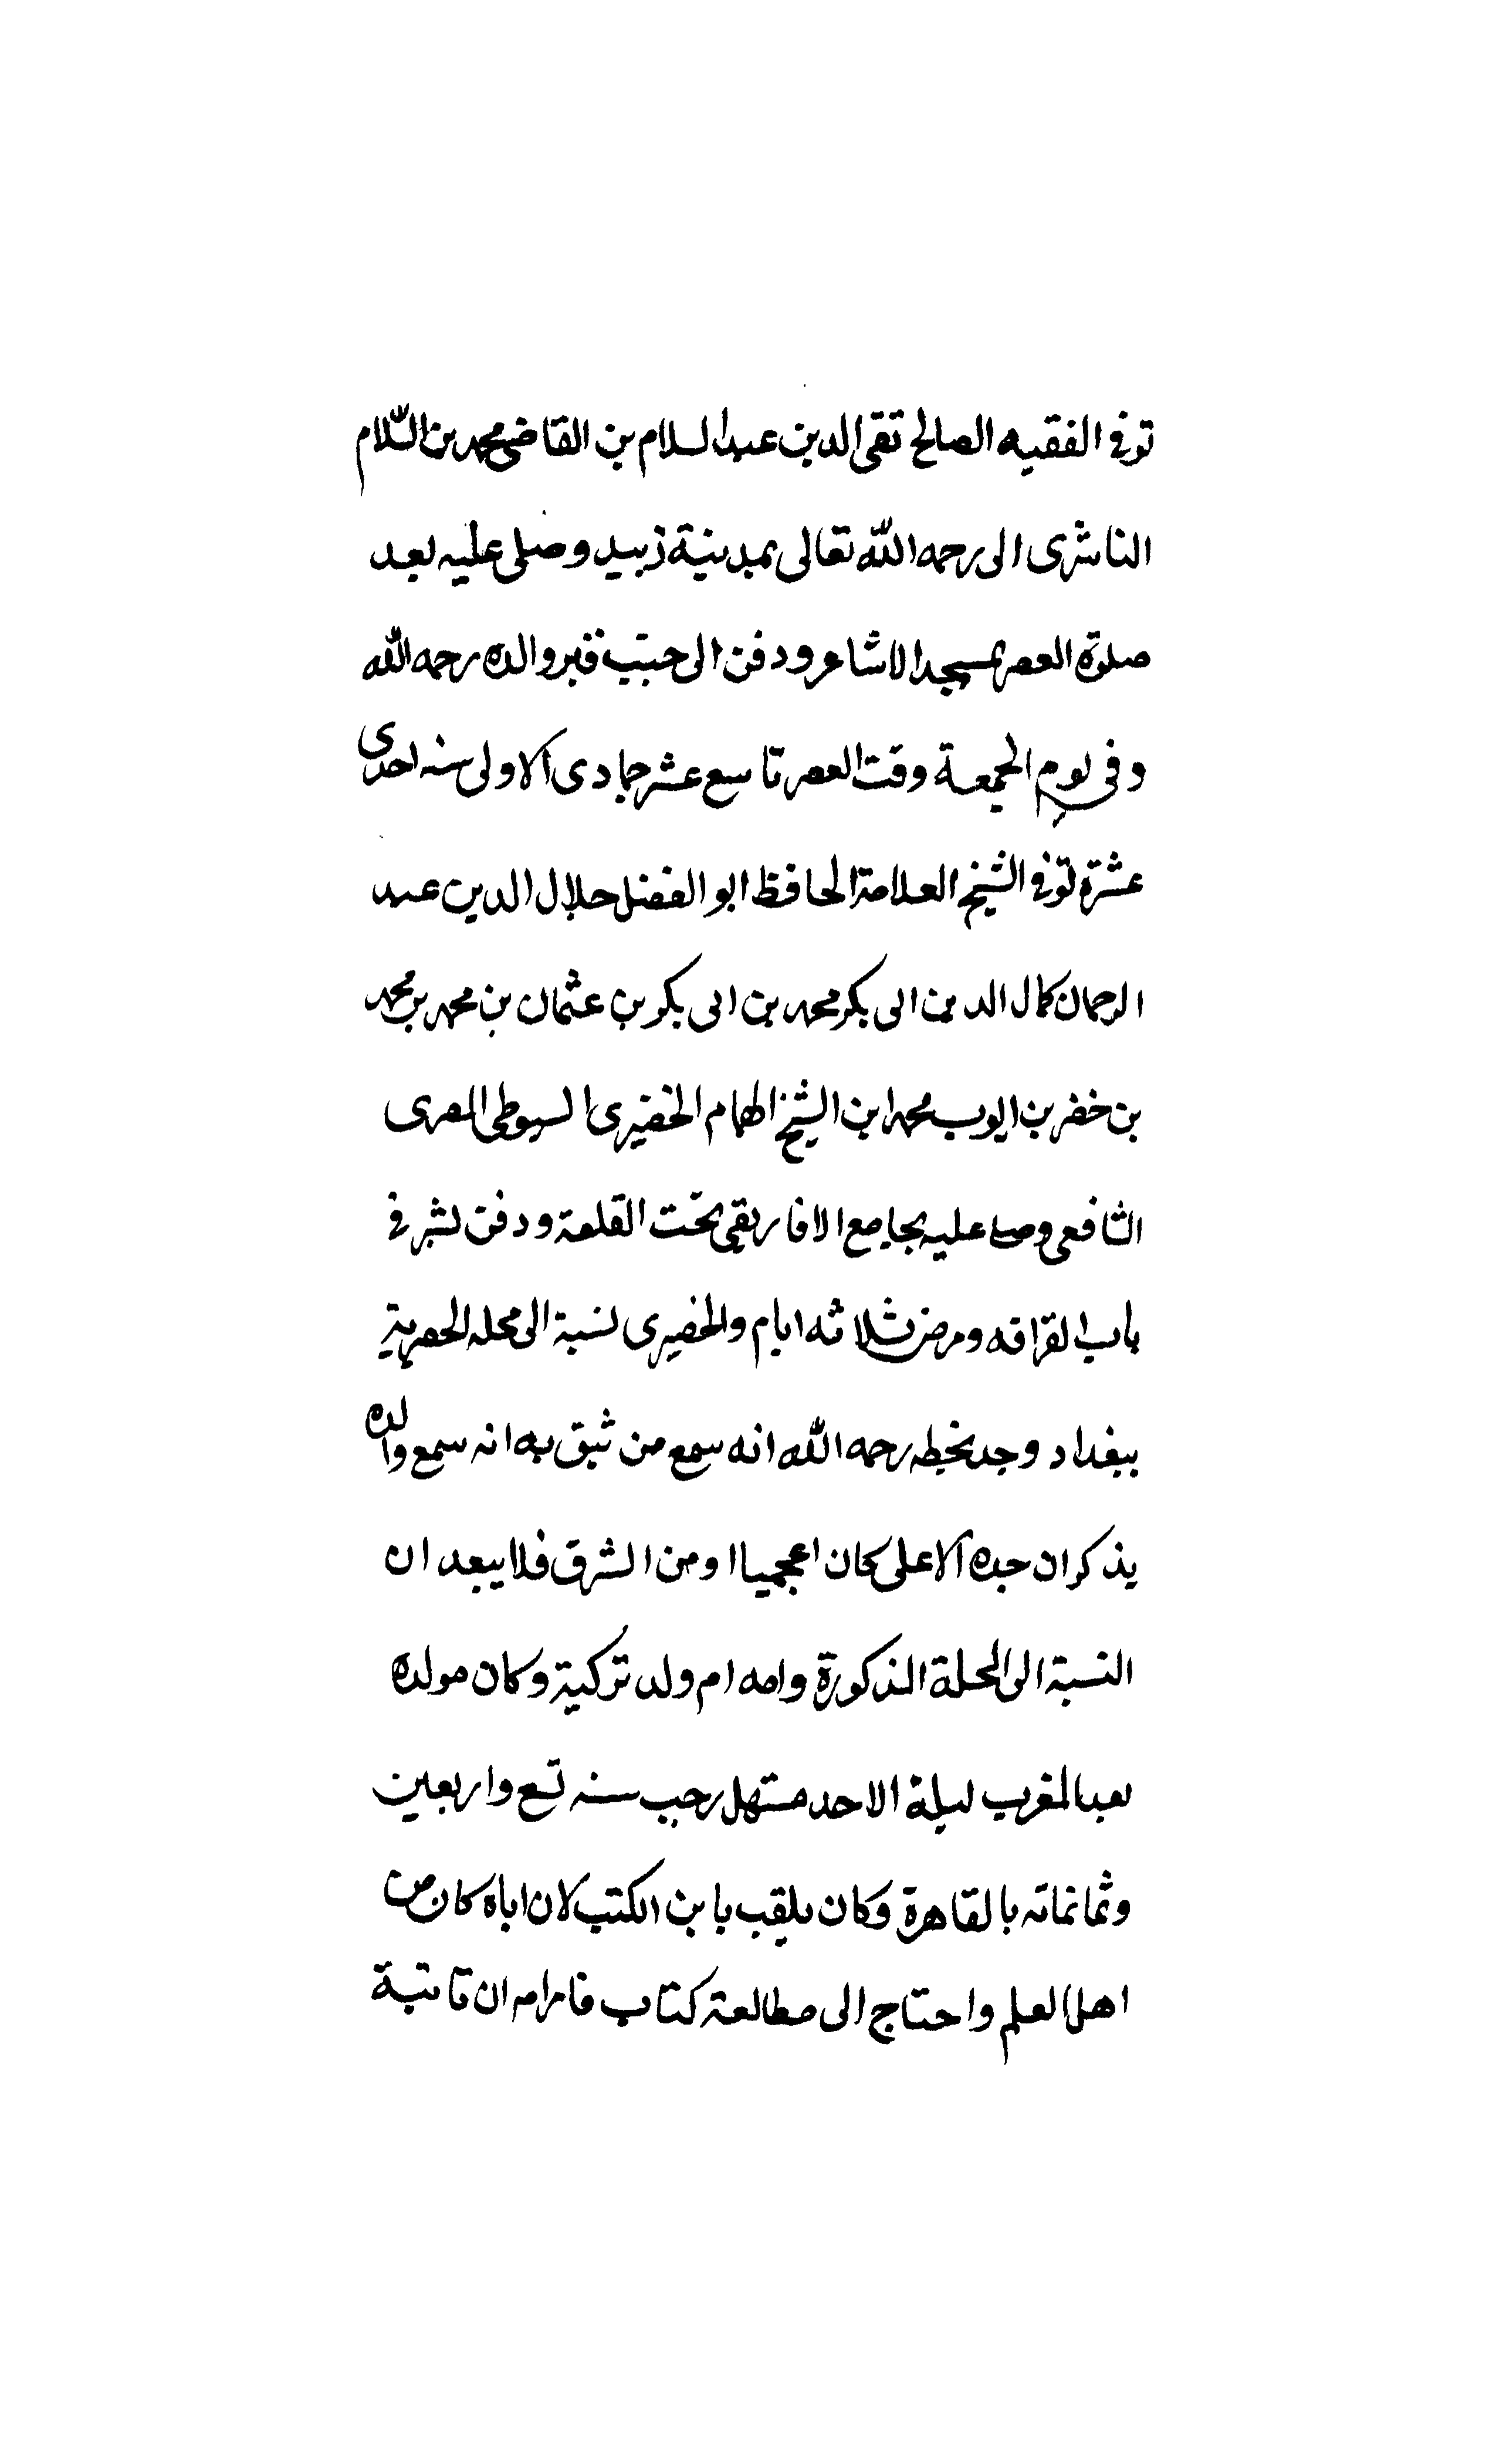 توفي الفقيه الصالح تقى الدين عبد السلام بن القاضى محمد بن السلام
الناشرى الى رحمه الله تعالى بمدينة زبيد وصلى عليه بعد
صلوة العصر بمسجد الاشاعر ودفن الى جنب قبر والده رحمه الله
وفى يوم الجمعة وقت العصر تاسع عشر جمادى الاولى سنه احدى
عشرة توفي الشيخ العلامة الحافظ ابو الفضل جلال الدين عبد
الرحمان كمال الدين ابى بكر محمد بن ابى بكر بن عثمان بن محمد بن محمد
بن خضر بن ايوب محمد ابن الشيخ الهمام الخضيرى السيوطى المصرى
الشافعى وصلى عليه بجامع الافاريقى تحت القلعة ودفن بشر في
باب القرافه ومرض ثلاثه ايام والخضيرى نسبة الى محله الخضرية
ببغداد وجد بخطه رحمه الله انه سمع من ثيق به انه سمع والده
يذكر ان جده الاعلى كان اعجميا او من الشرق فلا يبعد ان
النسبة الى المحلة المذكورة وامه ام ولد تركية وكان مولده
بعد المغرب ليلة الاحد مستهل رجب سنه تسع واربعين
وثمانمائه بالقاهرة وكان يلقب بابن الكتب لان اباه كان من
اهل العلم واحتاج الى مطالعة كتاب فامر امه ان تاتية